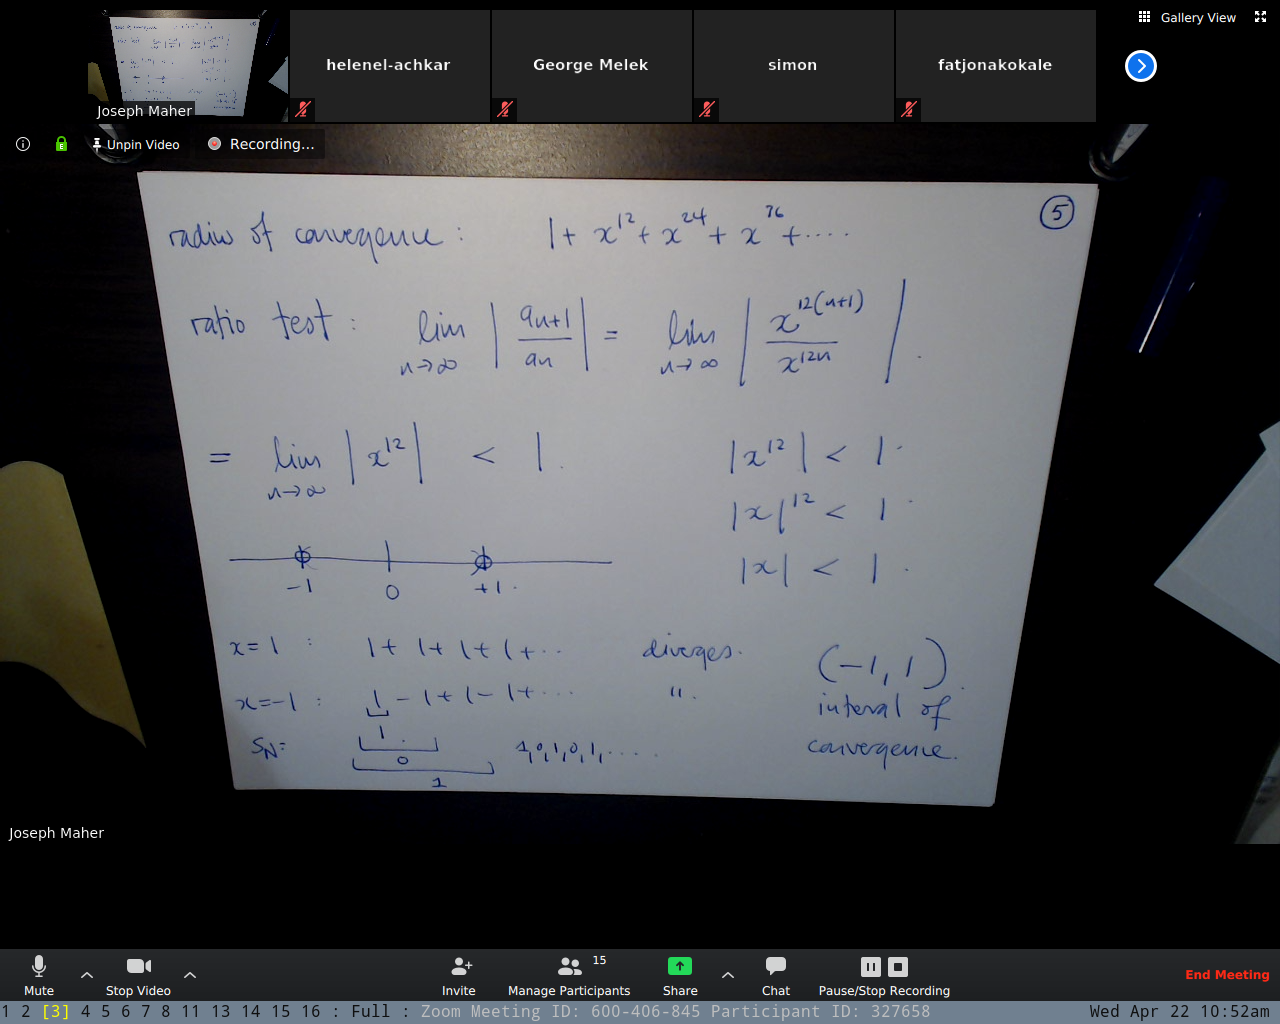 Gallery View
helenel-achkar
George Melek
simon
fatjonakokale
Joseph Maher
Unpin Video
Recording...
5
radius of convergence : 1 + x^12 + x^24 + x^36 + ....
ratio test : lim n→∞ | an+1 / an | = lim n→∞ | x^12(n+1) / x^12n | .
= lim n→∞ | x^12 | < 1 .
|x^12| < 1 .
|x|^12 < 1 .
|x| < 1 .
-1 0 +1 .
x = 1 : 1 + 1 + 1 + 1 + ... diverges.
x = -1 : 1 - 1 + 1 - 1 + .... " .
(-1, 1) .
interval of
convergence.
SN = 1 . 0 1 1,0,1,0,1, .....
Joseph Maher
Mute
Stop Video
Invite
Manage Participants
15
Share
Chat
Pause/Stop Recording
End Meeting
1 2 [3] 4 5 6 7 8 11 13 14 15 16 : Full : Zoom Meeting ID: 600-406-845 Participant ID: 327658
Wed Apr 22 10:52am